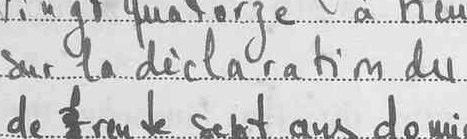 vingt quatorze à neu
sur la déclaration du
de trente sept ans domi